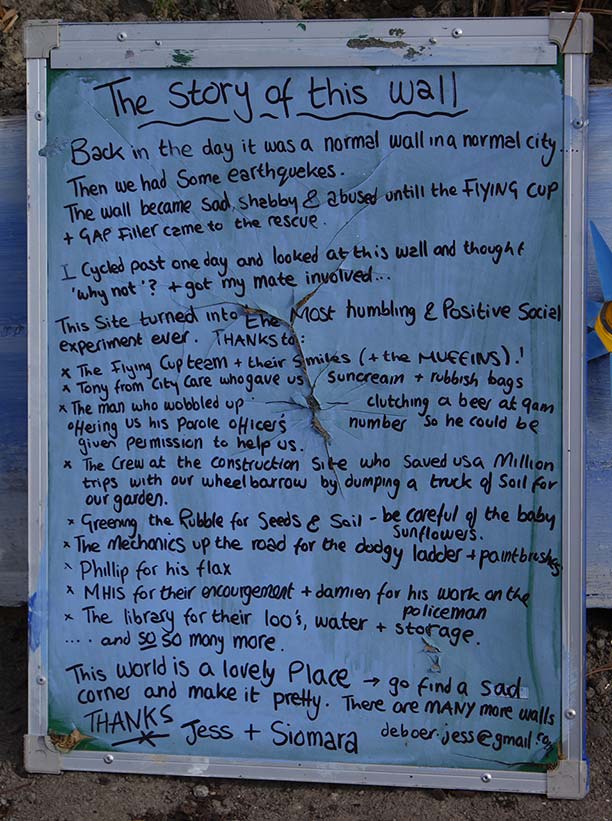 The Story of this wall
Back in the day it was a normal wall in a normal city ...
Then we had some earthquekes.
The wall became sad, shabby & abused untill the FLYING CUP
+ GAP Filler came to the rescue.
I cycled past one day and looked at this wall and thought
'why not'? + got my mate involved...
This Site turned into the Most humbling & Positive Social
experiment ever. THANKS to:
x The Flying Cup team + their smiles (+ the MUFFINS)!
x Tony from City Care who gave us suncream + rubbish bags
x The man who wobbled up clutching a beer at 9am
offering us his Parole officer's number so he could be
given permission to help us.
x The Crew at the construction site who saved us a Million
trips with our wheelbarrow by dumping a truck of soil for
our garden.
x Greening the Rubble for Seeds & Soil - be careful of the baby
sunflowers.
x The Mechanics up the road for the dodgy ladder + paintbrushes
x Phillip for his flax
x MHIS for their encourgement + damien for his work on the
policeman
x The library for their loo's, water + storage.
.... and so so many more.
This world is a lovely Place → go find a sad
corner and make it pretty. There are MANY more walls
THANKS Jess + Siomara deboer.jess@gmail.com
x